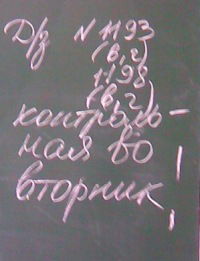 Д/з N 1193
(в, г)
1198
(в, г)
контроль-
ная во
вторник!